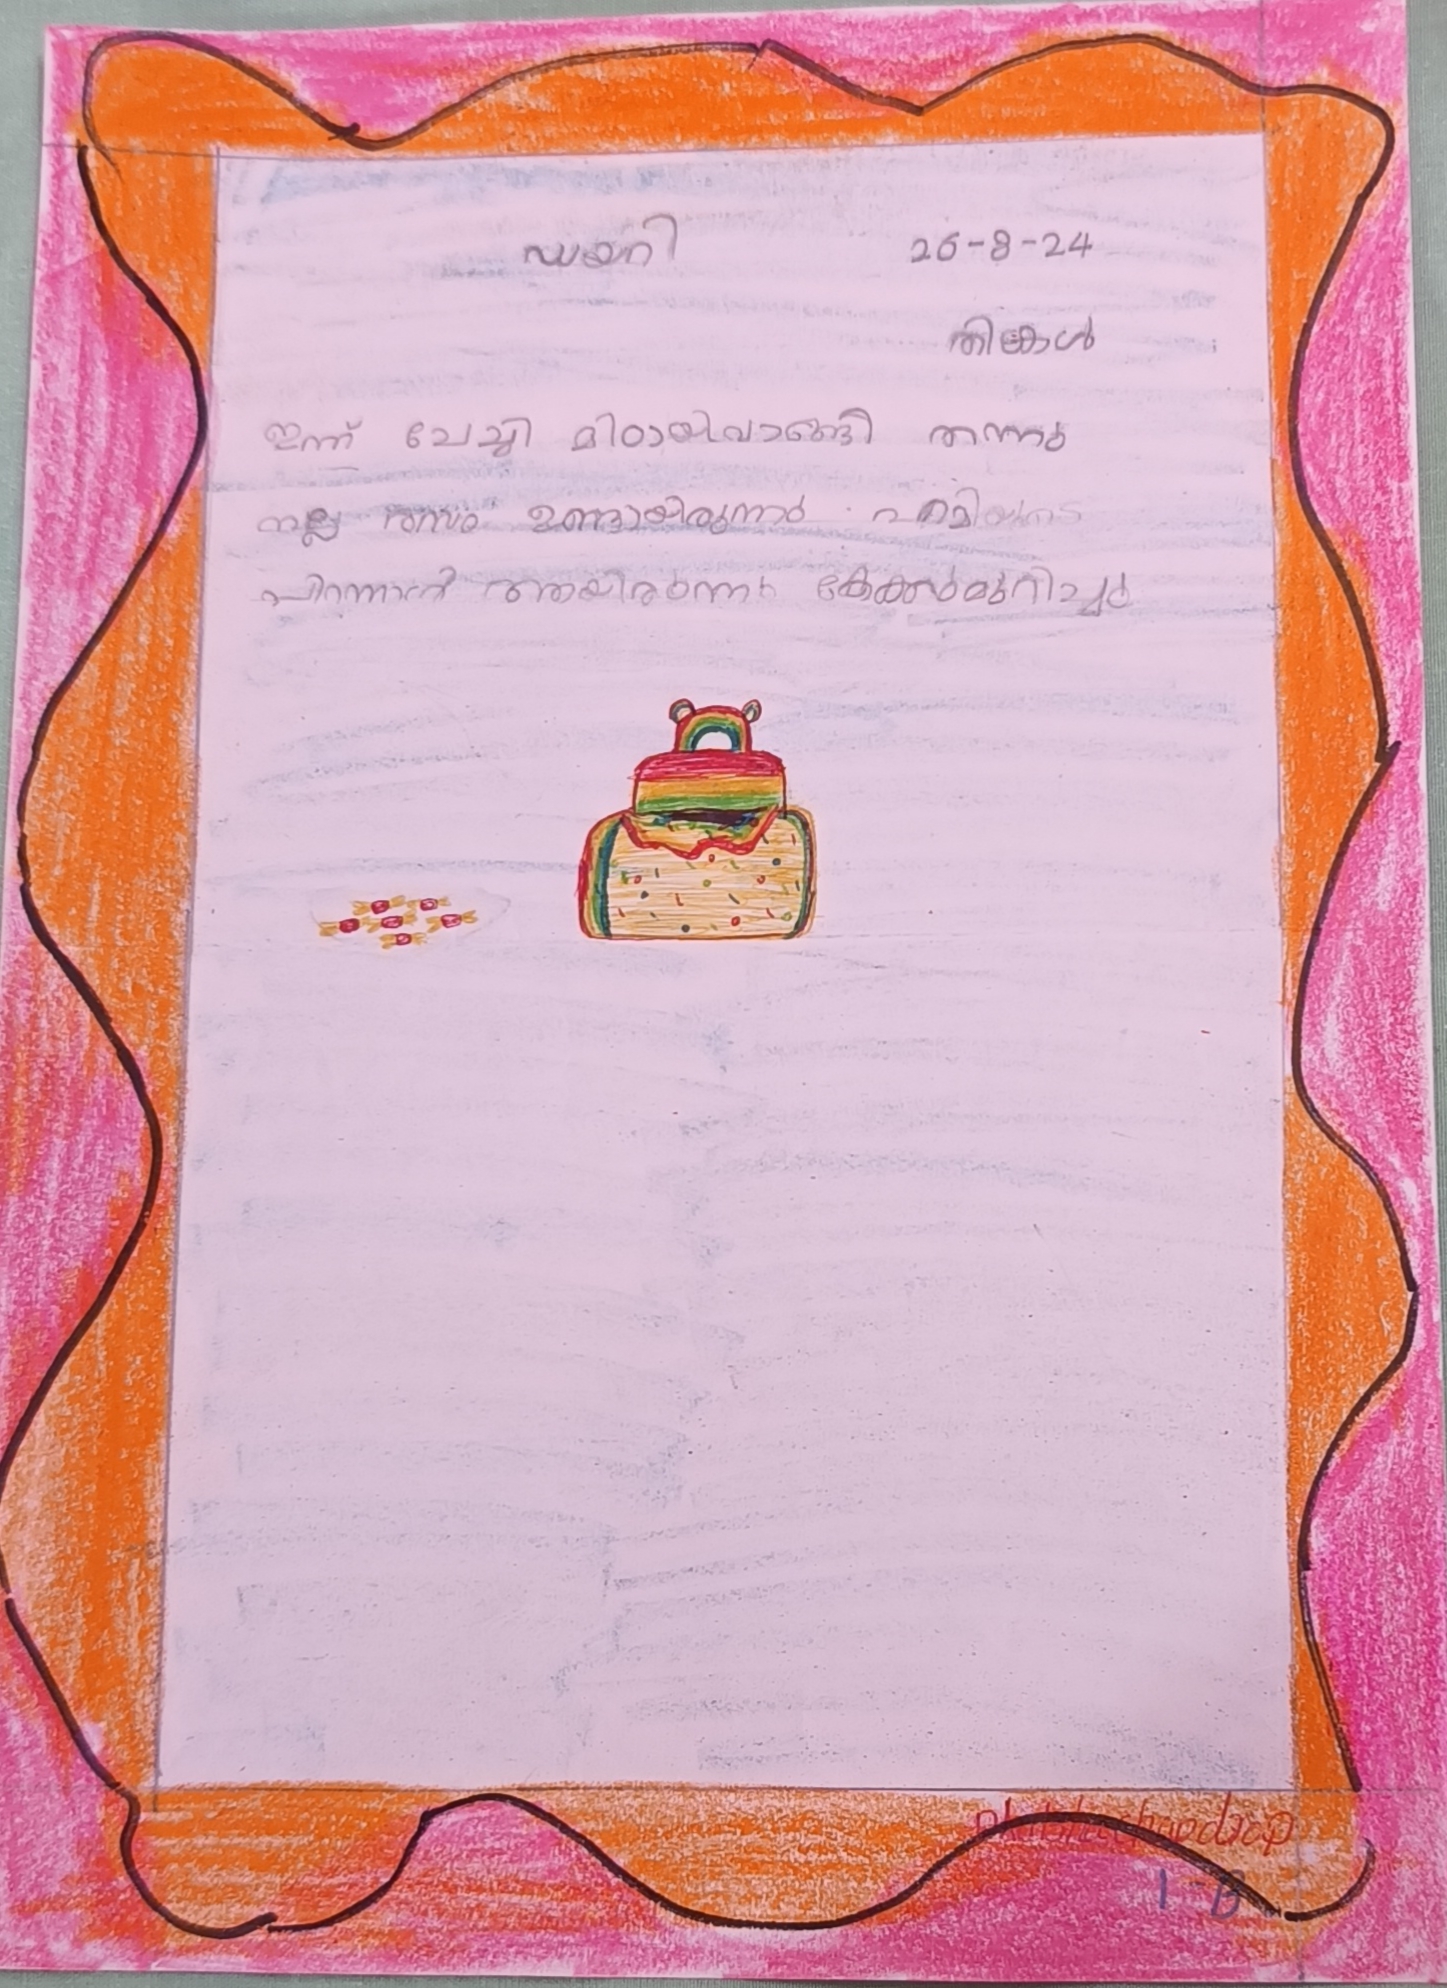 ഡയറി 26-8-24
തിങ്കൾ
ഇന്ന് ചേച്ചി മിഠായിവാങ്ങി തന്നു
നല്ല രസം ഉണ്ടായിരുന്നു
പിറന്നാൾ ആയിരുന്നു കേക്ക്മുറിച്ചു
1-B